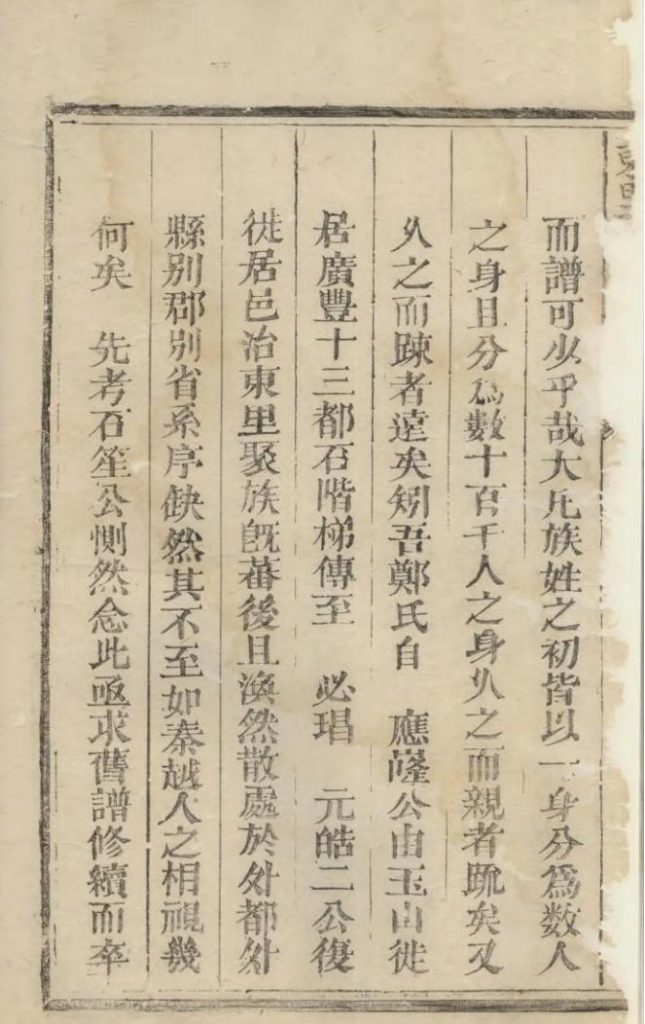 而譜可少乎哉大凡族姓之初皆以一身分爲数人
之身且分爲數十百千人之身乆之而親者䟽矣又
乆之而踈者遠矣矧吾鄭氏自　應薩公由玉山徙
居廣豐十三都石階梯傳至　必琩　元皓二公復
徙居邑治東里聚族旣蕃後且渙然散處於外都外
縣别郡别省系序缺然其不至如秦越人之相視幾
何矣　先考石笙公惻然念此亟求舊譜修續而卒